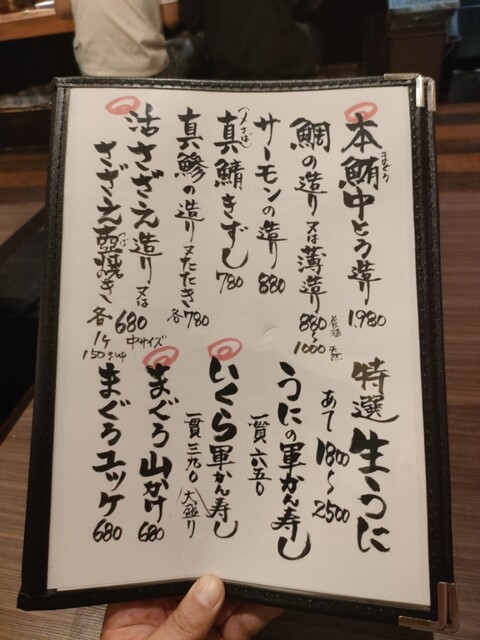 本鮪中とろ造り 1,980
まぐろ
鯛の造り又は薄造り 880〜1000
サーモンの造り 880
真鯖きずし 780
真鯵の造り又たたき 各780
活さざえ造り又は
さざえ壺焼き 各680
つぼ
中サイズ
1ケ
特選生うに
あて 1800〜2500
うにの軍かん寿し
一貫 六五〇
いくら軍かん寿し
一貫 三九〇 大盛り
まぐろ山かけ 680
まぐろユッケ 680